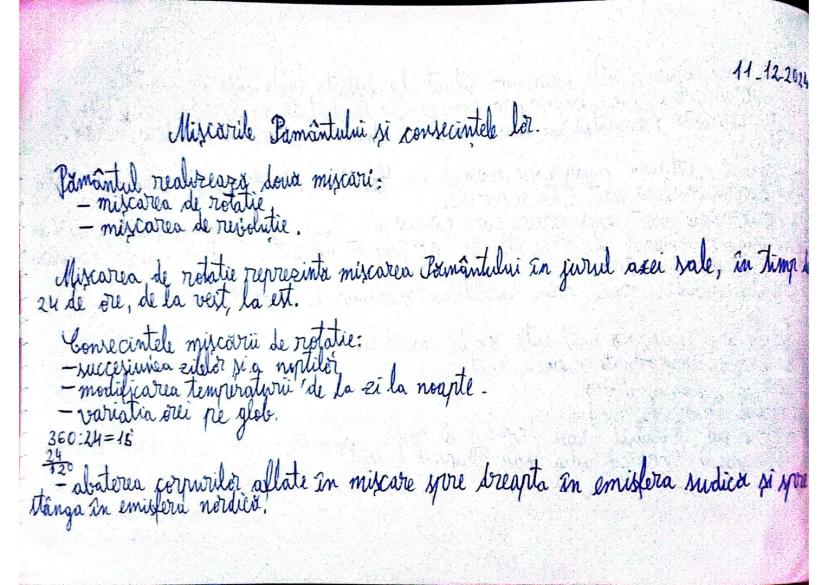 11-12-2024
Mișcările Pamântului și consecințele lor.
Pământul realizează două mișcări:
- mișcarea de rotație
- mișcarea de revoluție.
Mișcarea de rotație reprezintă mișcarea Pământului în jurul axei sale, în timp de
24 de ore, de la vest, la est.
Consecințele mișcării de rotație:
- succesiunea zilelor și a nopților
- modificarea temperaturii de la zi la noapte.
- variația orei pe glob.
360:24=15
24
120
- abaterea corpurilor aflate în mișcare spre dreapta în emisfera sudică și spre
stânga în emisfera nordică.